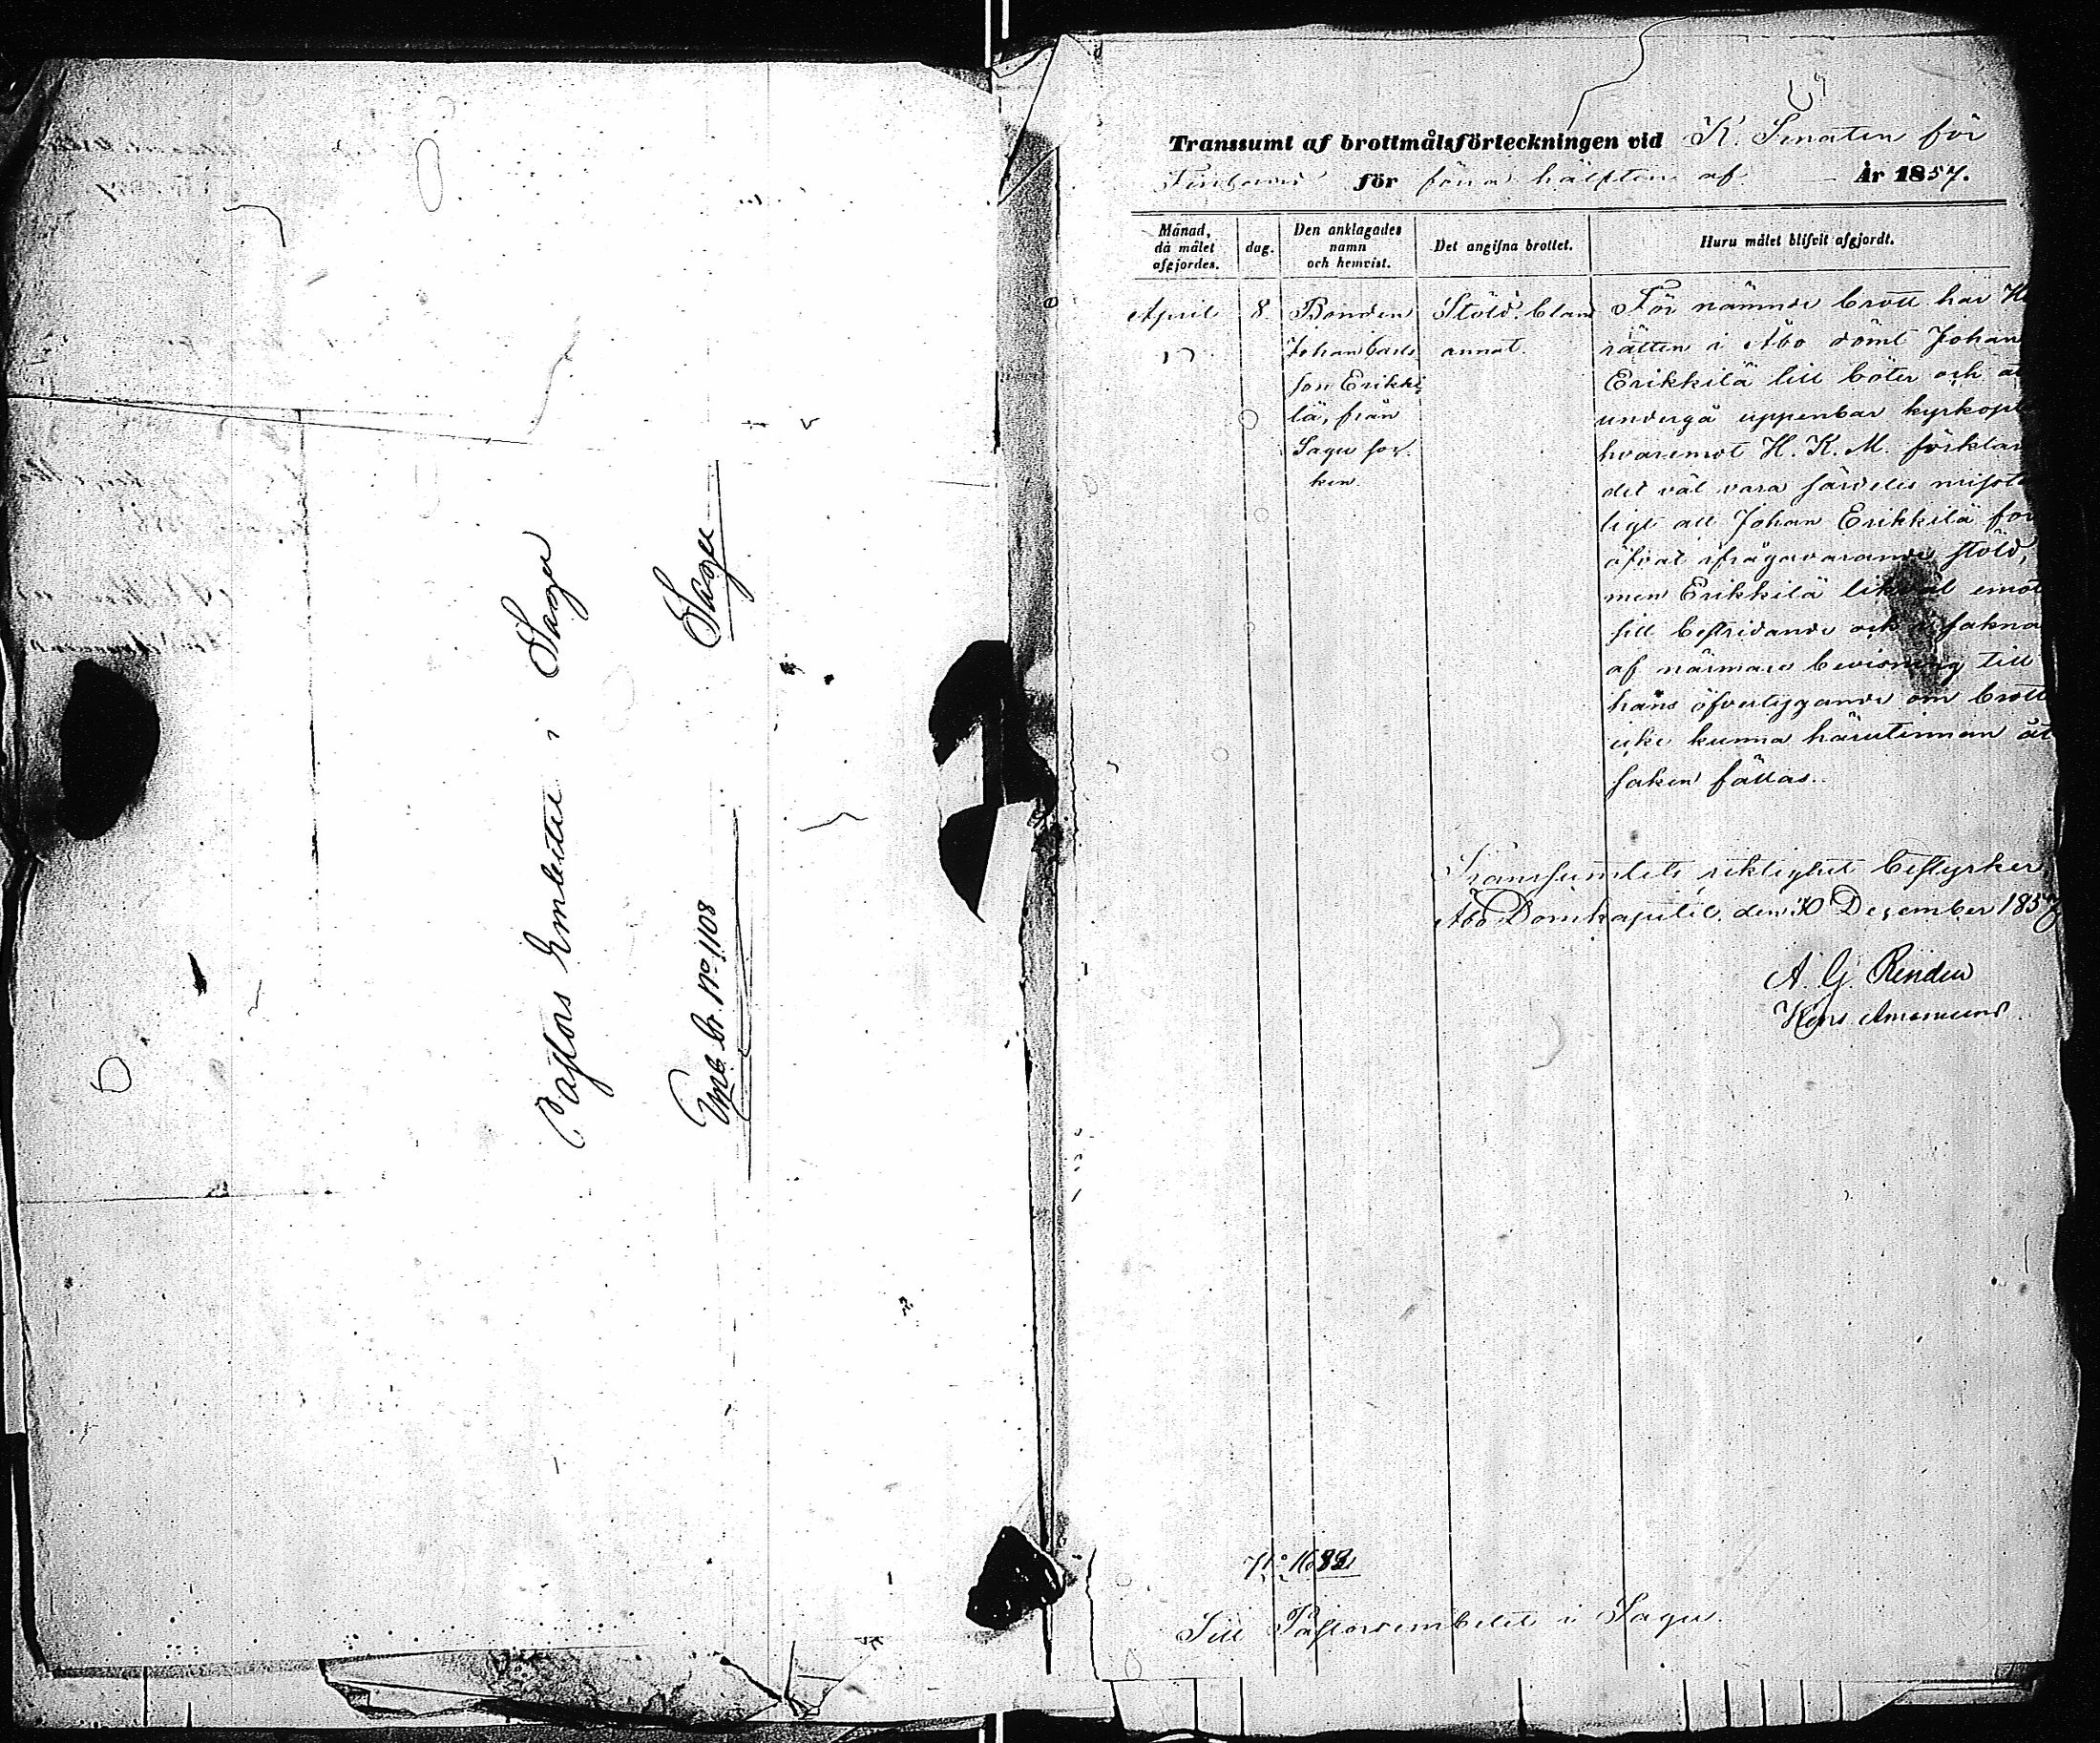 Pastors Embetet i Sagu
Sagu
Emb. br. No 1108
Transsumt af brottmålsförteckningen vid K. Senaten för
Finland för förra hälften af År 1857.
Månad, då målet afgjordes.
dag.
Den anklagades namn och hemvist.
Det angifna brottet.
Huru målet blifvit afgjordt.
April
8.
Bonden
Johan Carls
son Erikki
lä, från
Sagu soc
ken.
Stöld bland
annat.
För nämnde brott har H
rätten i Åbo dömt Johan
Erikkilä till böter och at
undergå uppenbar kyrkopl
hvaremot H. K. M. förklar
det väl vara särdeles misst
ligt att Johan Erikkilä för
öfvat ifrågavarande stöld,
men Erikkilä likväl emot
sitt bestridande och i saknad
af närmare bevisning till
hans öfvertygande om brott
icke kunna härutinnan åt
saken fällas.
Transsumtets riktighet bestyrker,
Åbo Domkapitel, den 10 December 1857
A. G. Rinden
Kons. Amanuens.
No 1682
Till Pastorsembetet i Sagu.